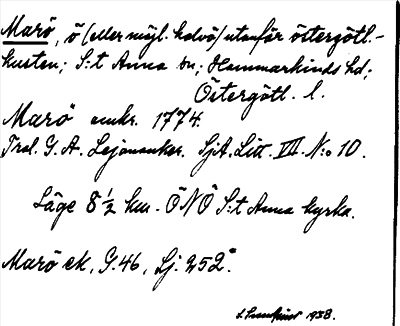 Marö, ö (eller möjl. halvö) utanför östergötl.-
kusten; S:t Anna sn; Hammarkinds hd;
Östergötl. l.
Marö omkr. 1774.
Trol. G. A. Lejonanker. SjA. Litt. VII. N:o 10.
Läge 8 ½ km. ÖNÖ S:t Anna kyrka.
Marö ek, G. 46, Lj. 252".
1938.